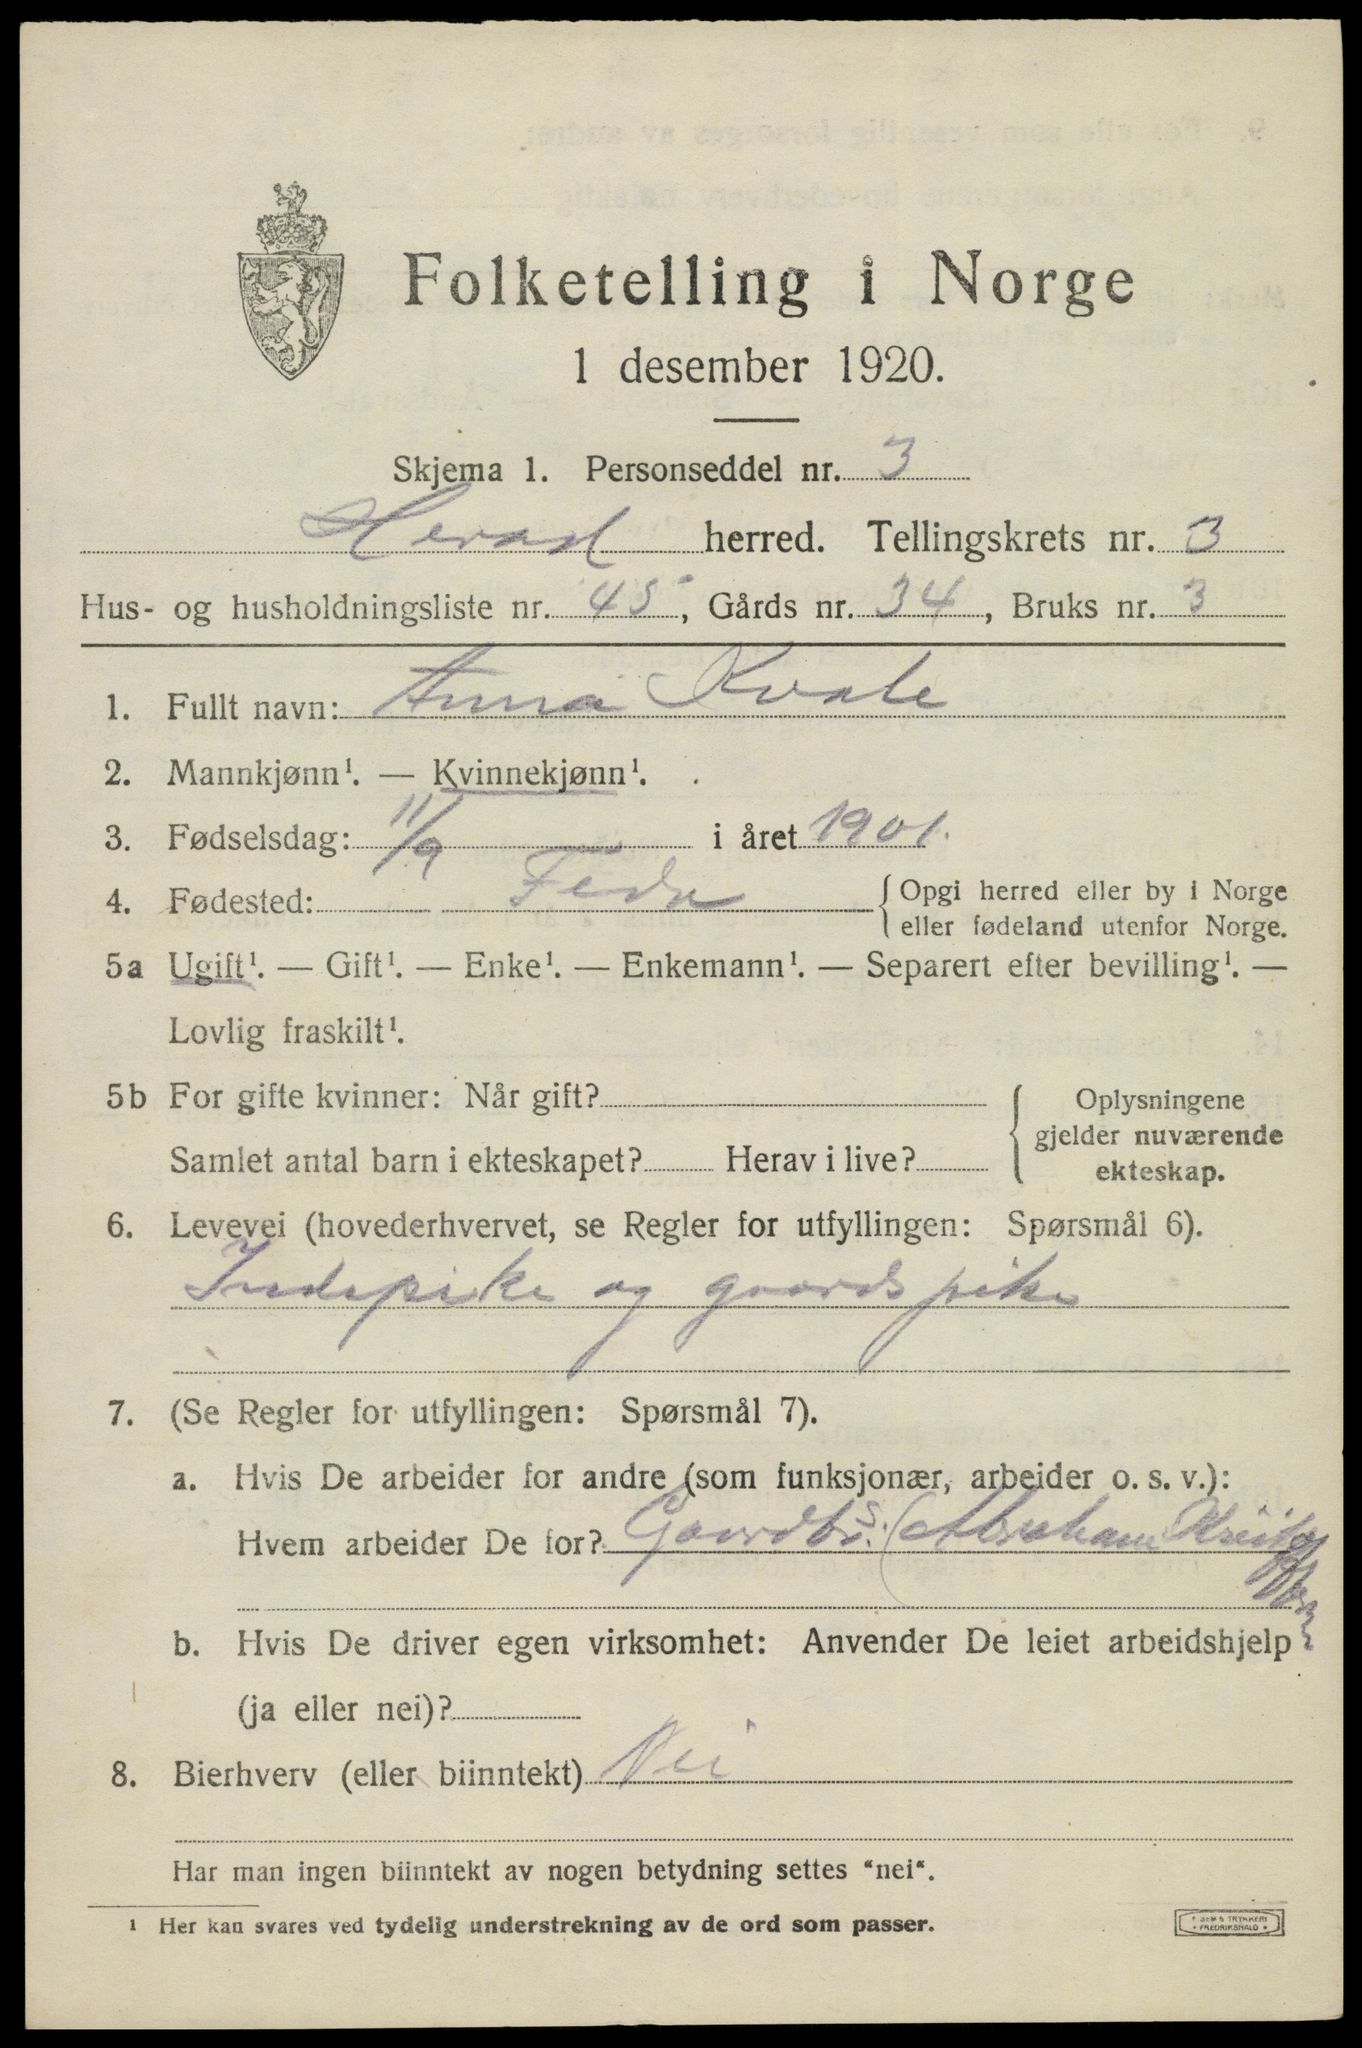 Folketelling i Norge
1 desember 1920.
Skjema 1. Personseddel nr. 3
Herad herred. Tellingskrets nr. 3
Hus- og husholdningsliste nr. 45, Gårds nr. 34, Bruks nr. 3
1. Fullt navn: Anna Kvale
2. Mannkjønn¹. — Kvinnekjønn¹.
3. Fødselsdag: 11/9 i året 1901.
4. Fødested: Feda { Opgi herred eller by i Norge
eller fødeland utenfor Norge.
5a Ugift¹. — Gift¹. — Enke¹. — Enkemann¹. — Separert efter bevilling¹. —
Lovlig fraskilt¹.
5b For gifte kvinner: Når gift?
Samlet antal barn i ekteskapet? Herav i live?
Oplysningene
gjelder nuværende
ekteskap.
6. Levevei (hovederhvervet, se Regler for utfyllingen: Spørsmål 6).
Indepike og gaardspike
7. (Se Regler for utfyllingen: Spørsmål 7).
a. Hvis De arbeider for andre (som funksjonær, arbeider o. s. v.):
Hvem arbeider De for? Gaardbr. (Abraham
b. Hvis De driver egen virksomhet: Anvender De leiet arbeidshjelp
(ja eller nei)?
8. Bierhverv (eller biinntekt) Nei
Har man ingen biinntekt av nogen betydning settes "nei".
¹ Her kan svares ved tydelig understrekning av de ord som passer.
SEM & TRYKKERI
FREDRIKSHALD